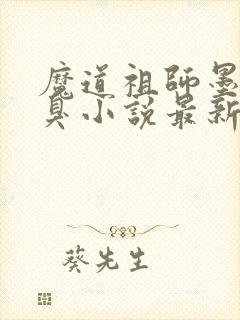 魔道祖師墨
臭小說最新
葵先生